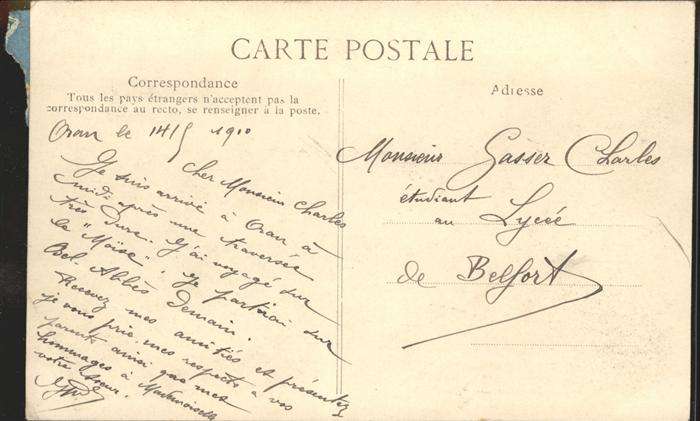 CARTE POSTALE
Correspondance
Tous les pays étrangers n'acceptent pas la
correspondance au recto, se renseigner à la poste.
Oran le 14/5 1910
Cher Monsieur Charles
Je suis arrivé à Oran à
midi après une traversée
très dure. J'ai voyagé sur
le "Moïse". Je partirai sur
Bel Abbès demain.
Recevez mes amitiés et présentez
je vous prie mes respects à vos
parents ainsi que mes
hommages à Mademoiselle
votre soeur.
Adresse
Monsieur Gasser Charles
étudiant
au Lycée
de Belfort